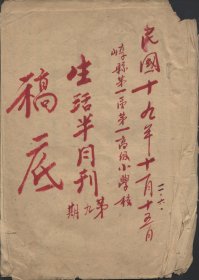 民國十九年十一月十五日
嵊縣第一區第一高級小學校
生活半月刊
第九期
稿底